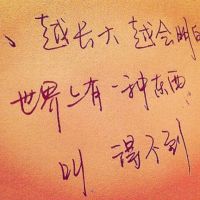 、越长大越会明白
世界上有一种东西
叫 得不到